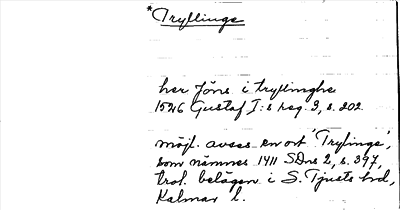 *Tryllinge
her Jöns i tryllinghe
1526 Gustaf I:s reg. 3, s. 202.
möjl. avses en ort 'Trylinge',
som nämnes 1411 SDns 2, s. 397,
trol. belägen i S. Tjusts hd,
Kalmar l.